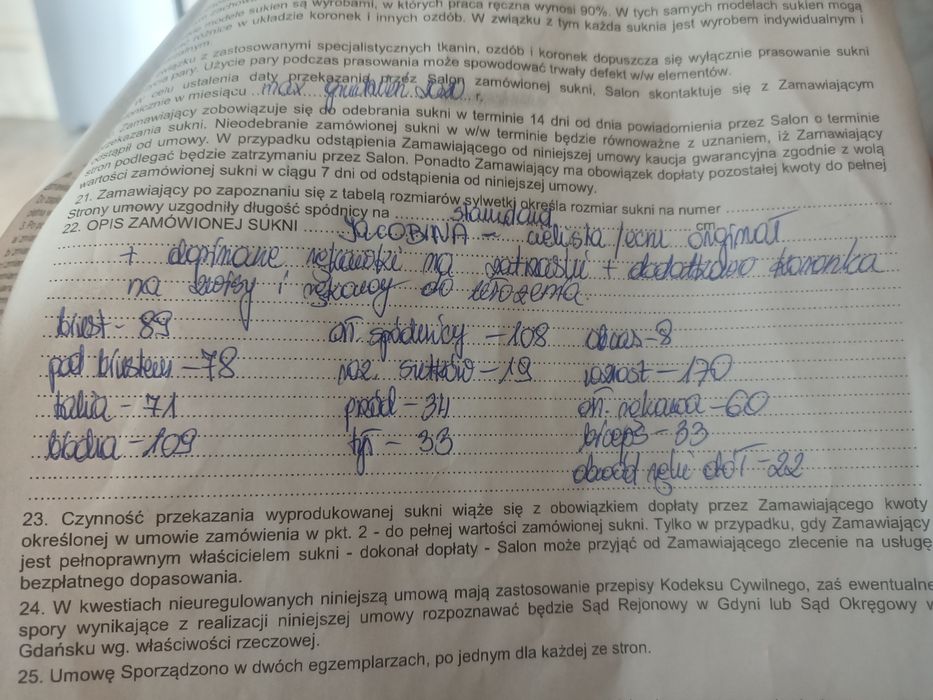 sukien są wyrobami, w których praca ręczna wynosi 90%. W tych samych modelach sukien mogą
różnice w układzie koronek i innych ozdób. W związku z tym każda suknia jest wyrobem indywidualnym i
z zastosowanymi specjalistycznych tkanin, ozdób i koronek dopuszcza się wyłącznie prasowanie sukni
pary. Użycie pary podczas prasowania może spowodować trwały defekt w/w elementów.
celu ustalenia daty przekazania przez Salon zamówionej sukni, Salon skontaktuje się z Zamawiającym
w miesiącu max grudzień r.
Zamawiający zobowiązuje się do odebrania sukni w terminie 14 dni od dnia powiadomienia przez Salon o terminie
przekazania sukni. Nieodebranie zamówionej sukni w w/w terminie będzie równoważne z uznaniem, iż Zamawiający
odstąpił od umowy. W przypadku odstąpienia Zamawiającego od niniejszej umowy kaucja gwarancyjna zgodnie z wolą
stron podlegać będzie zatrzymaniu przez Salon. Ponadto Zamawiający ma obowiązek dopłaty pozostałej kwoty do pełnej
wartości zamówionej sukni w ciągu 7 dni od odstąpienia od niniejszej umowy.
21. Zamawiający po zapoznaniu się z tabelą rozmiarów sylwetki określa rozmiar sukni na numer
Strony umowy uzgodniły długość spódnicy na standard cm
22. OPIS ZAMÓWIONEJ SUKNI JACOBINA - cielista/ecru oryginał
+ dopinane rękawki na zatrzaski + dodatkowo koronka
na biotsy i rękawy do
biust - 89 dł. spódnicy - 108 obcas - 8
pod biustem - 78 roz. sutków - 19 wzrost - 170
talia - 71 przód - 34 dł. rękawa - 60
biodra - 109 tył - 33 biceps - 33
obwód ręki dół - 22
23. Czynność przekazania wyprodukowanej sukni wiąże się z obowiązkiem dopłaty przez Zamawiającego kwoty
określonej w umowie zamówienia w pkt. 2 - do pełnej wartości zamówionej sukni. Tylko w przypadku, gdy Zamawiający
jest pełnoprawnym właścicielem sukni - dokonał dopłaty - Salon może przyjąć od Zamawiającego zlecenie na usługę
bezpłatnego dopasowania.
24. W kwestiach nieuregulowanych niniejszą umową mają zastosowanie przepisy Kodeksu Cywilnego, zaś ewentualne
spory wynikające z realizacji niniejszej umowy rozpoznawać będzie Sąd Rejonowy w Gdyni lub Sąd Okręgowy w
Gdańsku wg. właściwości rzeczowej.
25. Umowę Sporządzono w dwóch egzemplarzach, po jednym dla każdej ze stron.